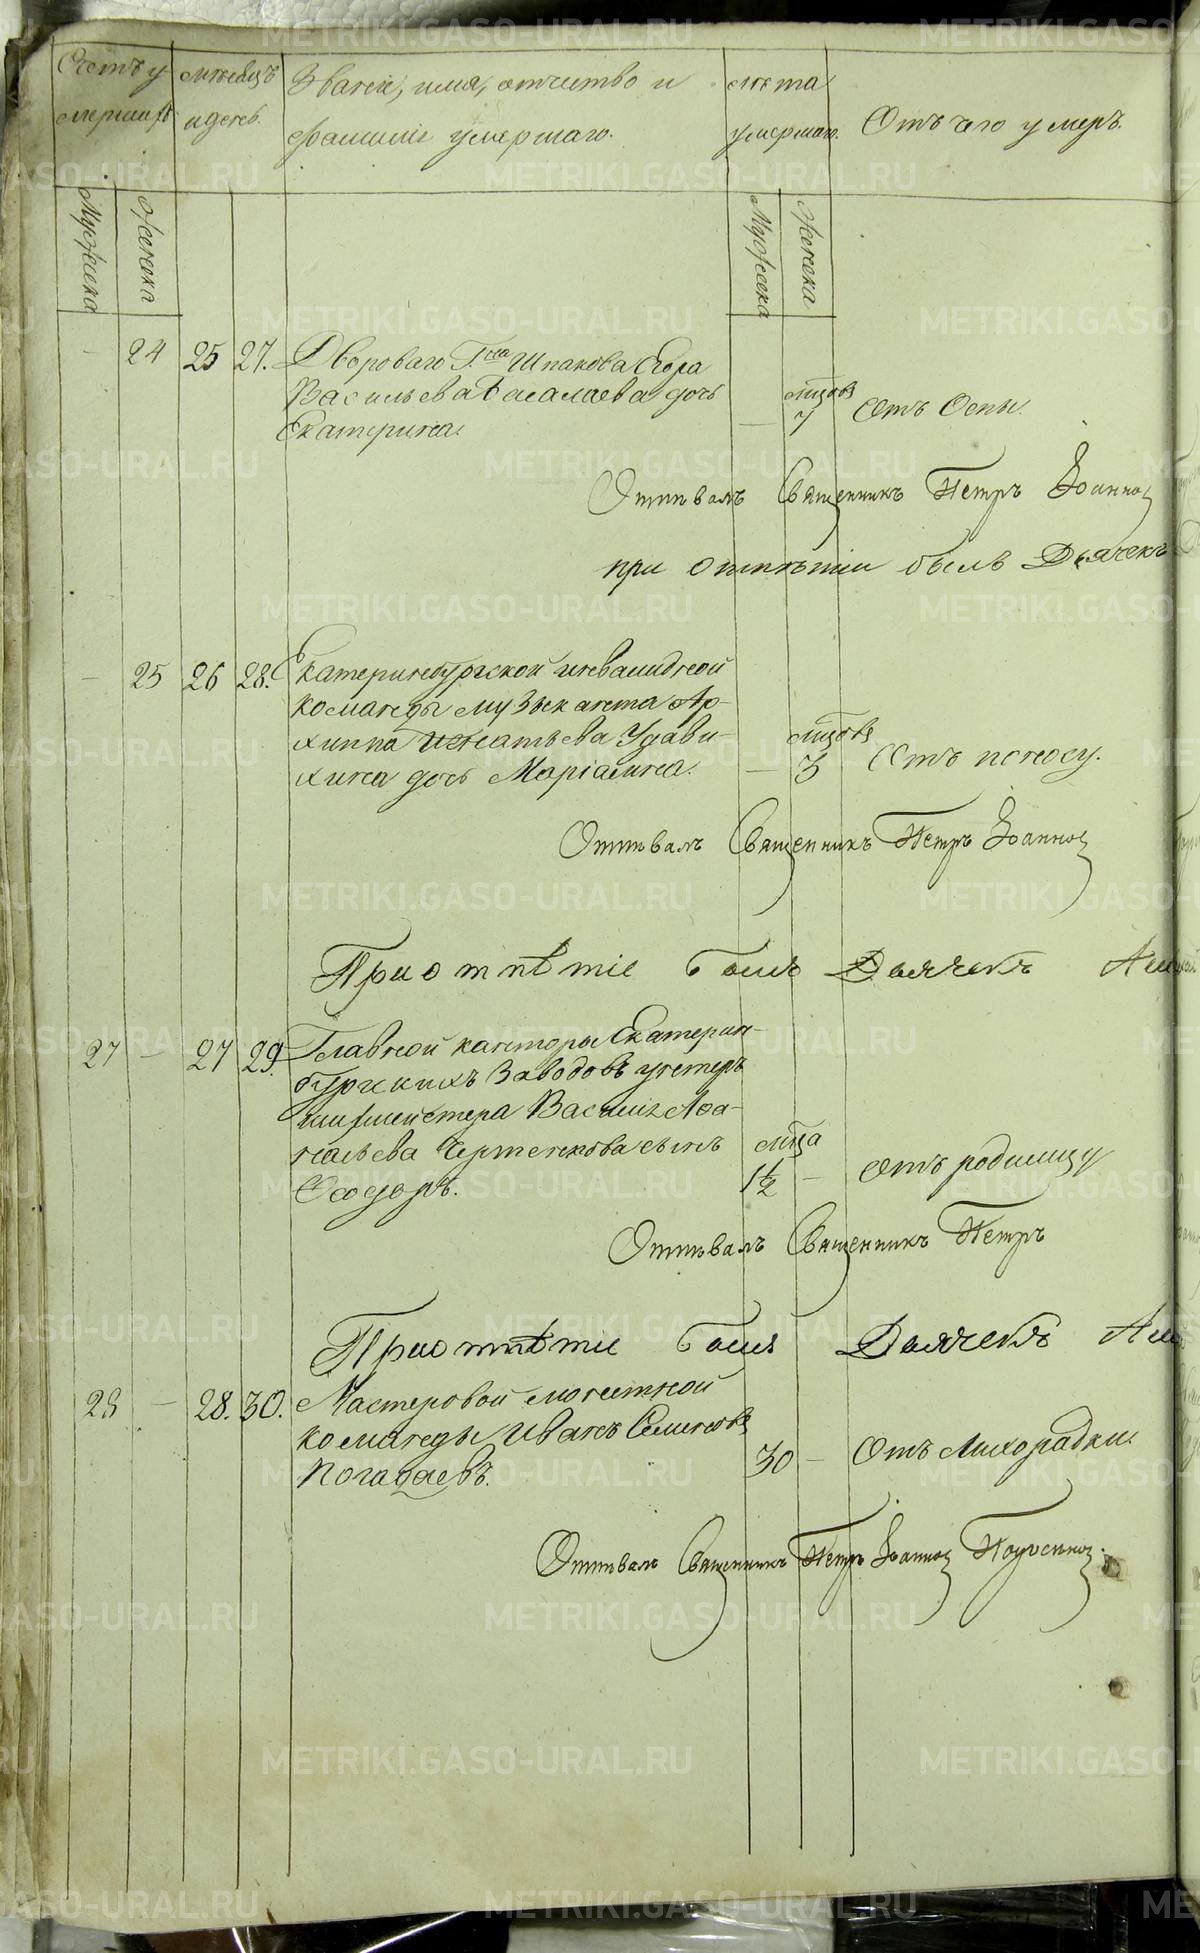 Счетъ у-
мершихъ
Мужеска
Женска
Месяцъ
и день.
Званіе, имя, отчество и
фамилія умершаго.
Лета
умершаго.
Мужеска
Женска
Отъ чего умеръ.
— 24 25 27. Двороваго Г.на Шпакова Егора
Васильева дочь
Екатерина.
— мцовъ 7 Отъ Оспы.
Отпѣвалъ Священникъ Петръ Іоанновъ
при отпѣтіи былъ Дьячекъ
— 25 26 28. Екатеринбургской инвалидной
команды музыканта Ар-
хиппа Игнатьева Удави-
хина дочь Маріамна.
— мцовъ 3 Отъ поносу.
Отпѣвалъ Священникъ Петръ Іоанновъ
При отпѣтіе былъ Дьячекъ
27 — 27 29. Главной канторы Екатерин-
бургскихъ Заводовъ унтеръ
шихмейстера Василія Аѳа-
насьева сынъ
Ѳеодоръ.
мца 1½ — Отъ родимцу
Отпѣвалъ Священникъ Петръ
При отпѣтіе былъ Дьячекъ
28 — 28. 30. Мастеровой монетной
команды Иванъ Семеновъ
Погадаевъ.
30 — Отъ Лихорадки.
Отпѣвалъ Священникъ Петръ Іоанновъ
METRIKI.GASO-URAL.RU